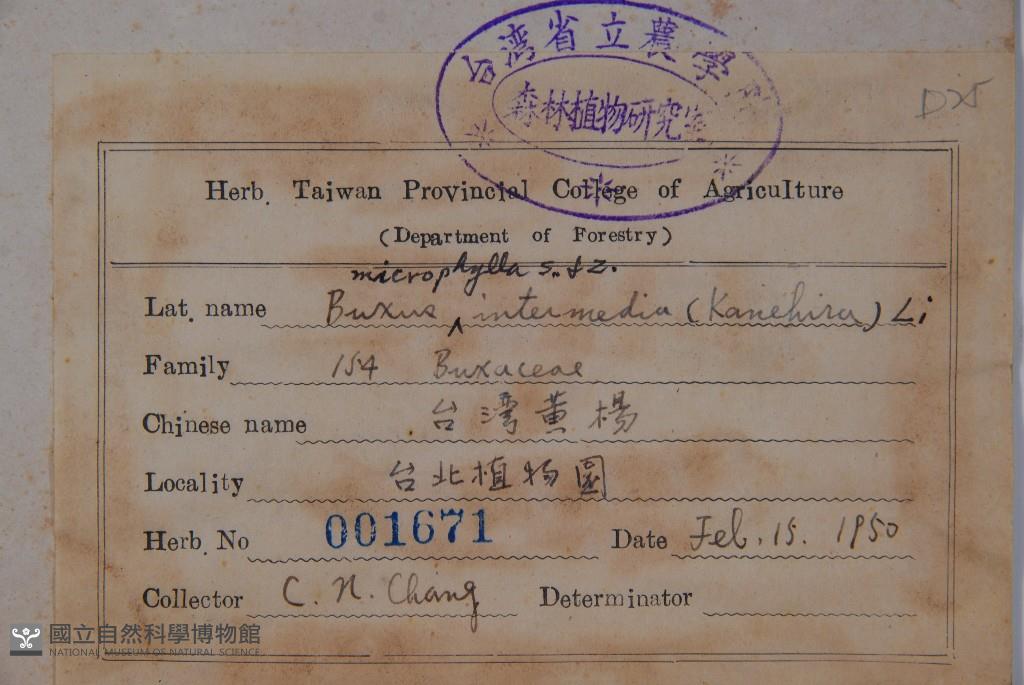 台湾省立農學院
森林植物研究室
D25
Herb. Taiwan Provincial College of Agriculture
(Department of Forestry)
microphylla S. & Z.
Lat. name Buxus ^ intermedia (Kanehira) Li
Family 154 Buxaceae
Chinese name 台灣黄楊
Locality 台北植物園
Herb. No 001671 Date Feb. 15. 1950
Collector C. N. Chang Determinator
國立自然科學博物館
NATIONAL MUSEUM OF NATURAL SCIENCE